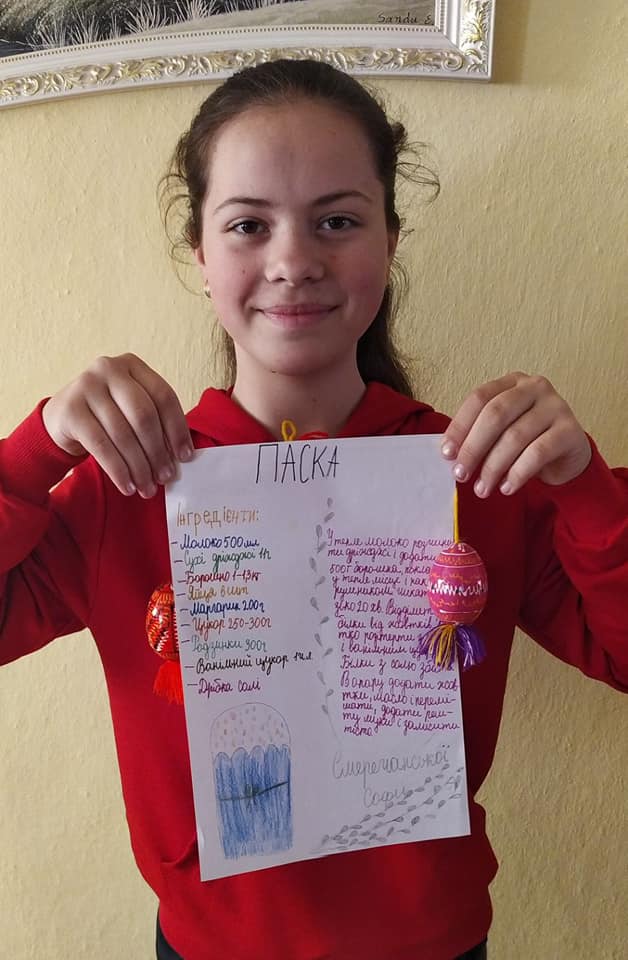 Sandu E
ПАСКА
Інгредієнти:
– Молоко 500 мл
– Сухі дріжджі 1п
– Борошно 1-1,3 кг
– Яйця 8 шт
– Маргарин 200 г
– Цукор 250-300г
– Родзинки 300г
– Ванільний цукор 1 ч.л.
– Дрібка солі
У тепле молоко розчини
ти дріжджі і додати
500г борошна, покла
у тепле місце і нак
рушником чекаи
зко 20 хв. Відділит
білки від жовтків
тко розтерти
і ванільним цу
Білки з сіллю зби
В опару додати жов
тки, масло і перемі
шати, додати реш
ту муки і замісити
тісто.
Смеречанської
Софії